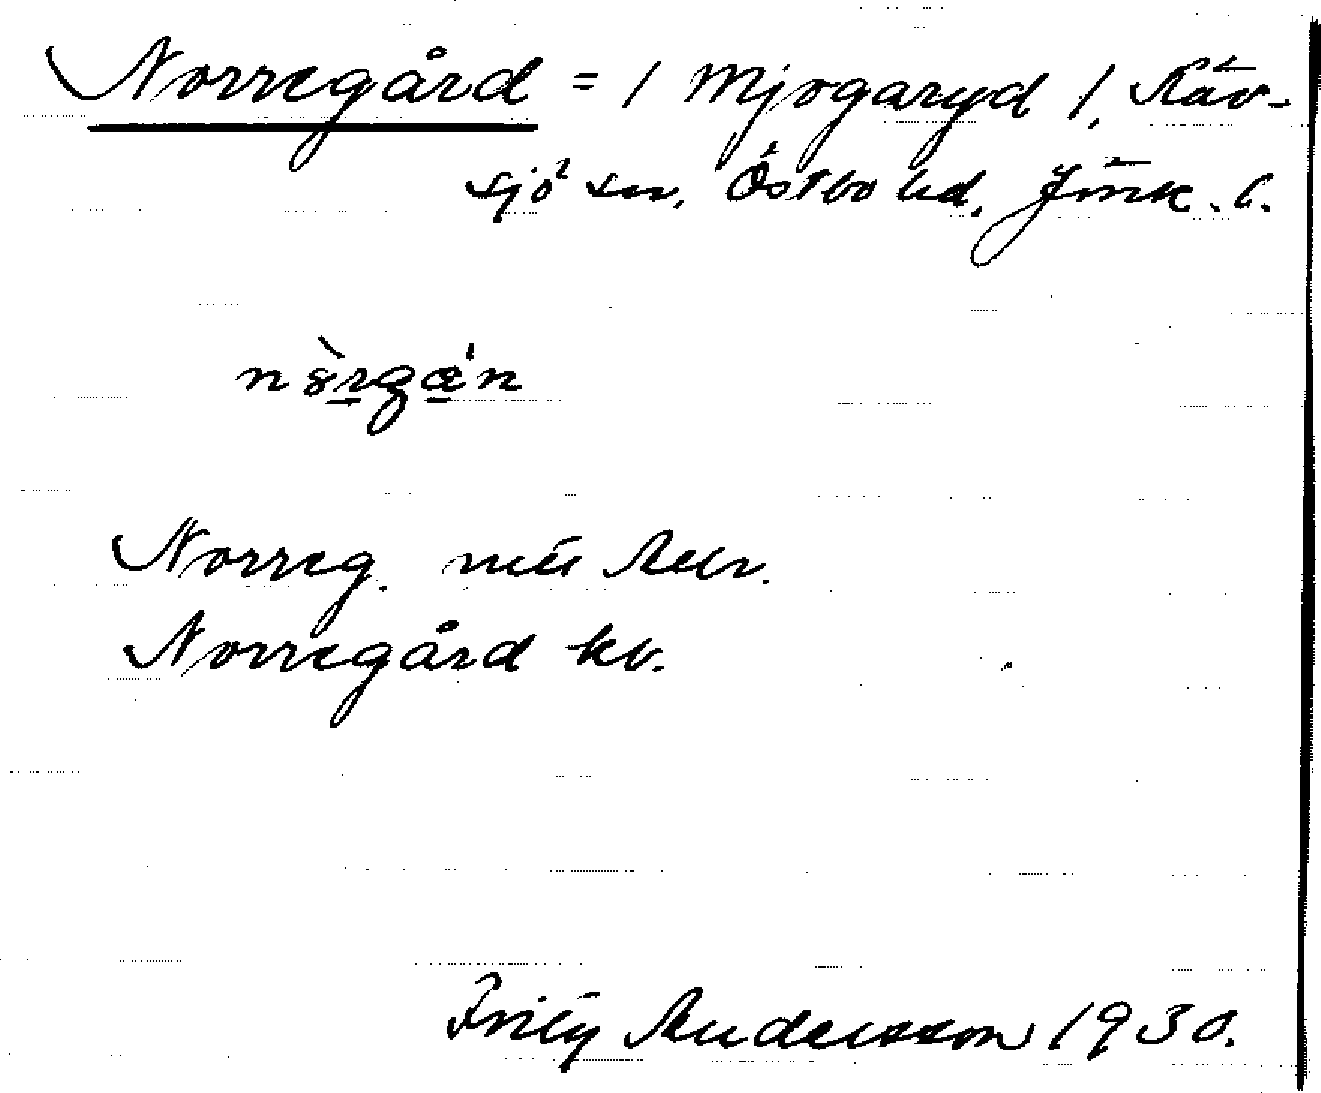 Norregård = / Mjogaryd /, Räv-
sjö sn, Östbo hd, Jönk. l.
Norreg.
Norregård kv.
Fritz Andersson 1930.